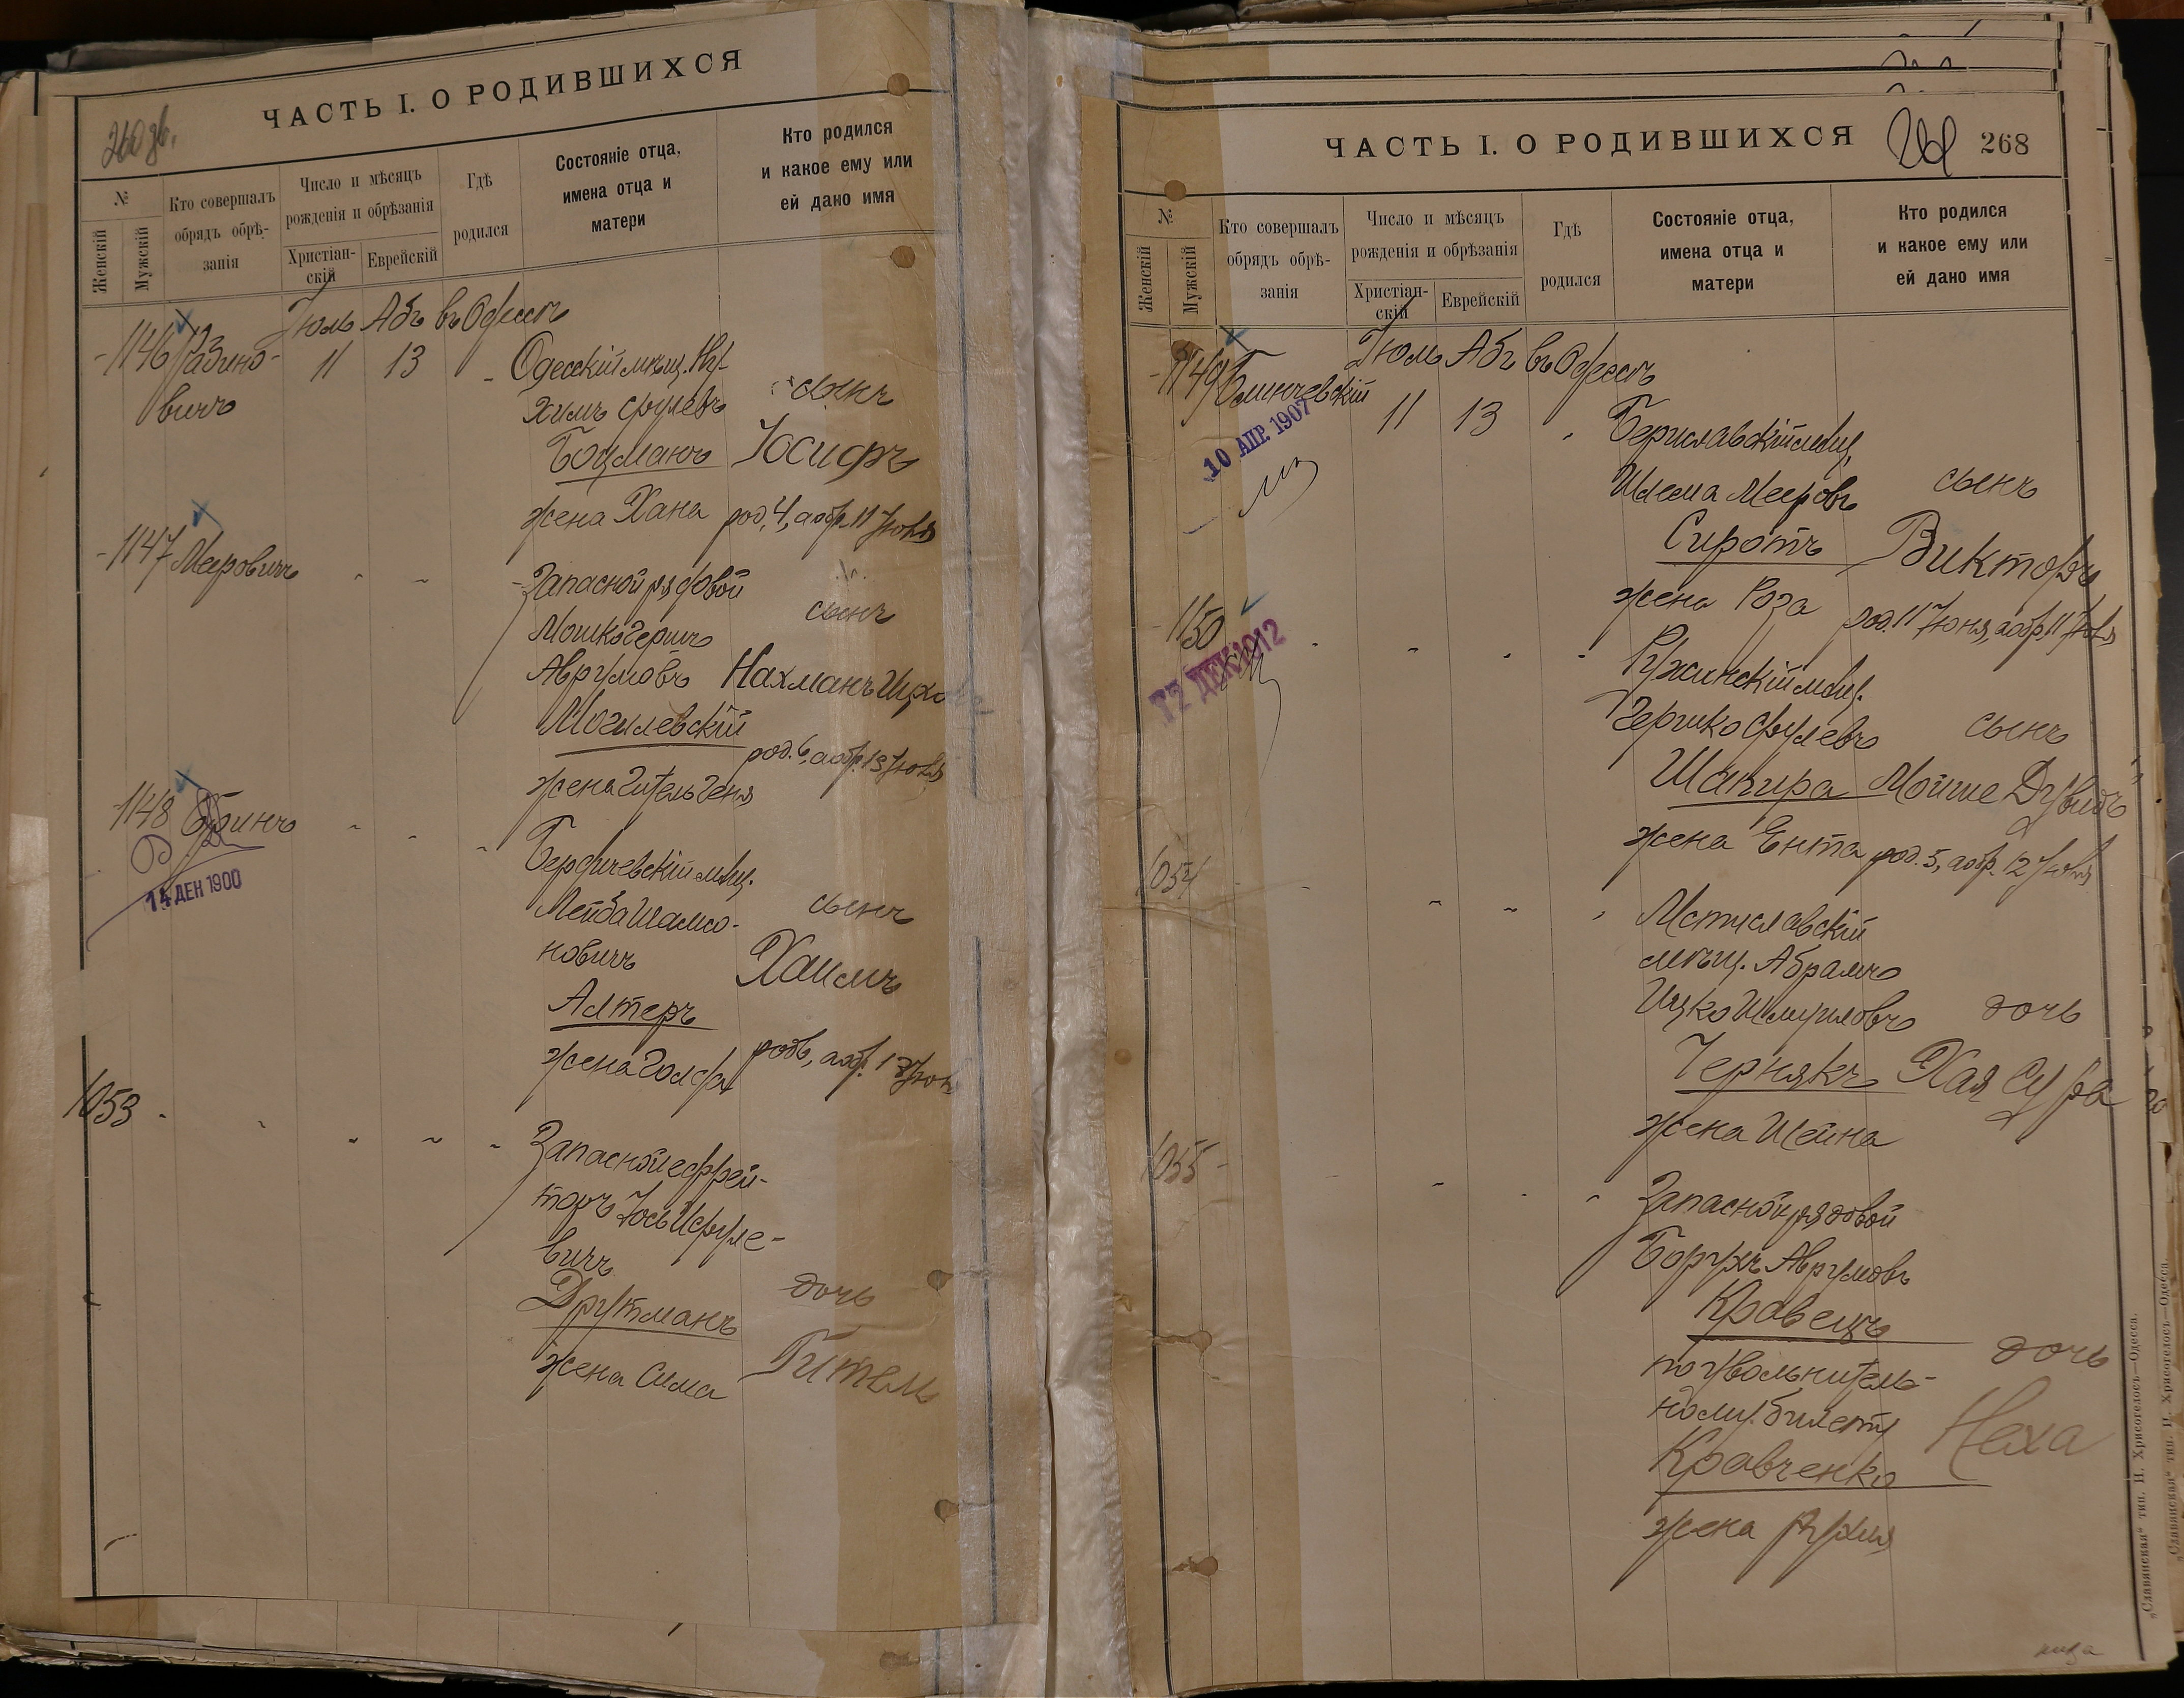 ЧАСТЬ I. О РОДИВШИХСЯ
№
Женскій
Мужскій
Кто совершалъ
обрядъ обрѣ-
занія
Число и мѣсяцъ
рожденія и обрѣзанія
Христіан-
скій
Еврейскій
Гдѣ
родился
Состояніе отца,
имена отца и
матери
Кто родился
и какое ему или
ей дано имя
Іюль Абъ въ Одессѣ
1146 Рабино-
вичъ
11 13
Одесскій мѣщ.
Хаимъ Срулевъ
Боцманъ
жена Хана
сынъ
Іосифъ
род. 4, а обр. 11 Іюля
1147 Мееровичъ
Запасной рядовой
Мошко Гершъ
Аврумовъ
Могилевскій
жена Гитель Геня
сынъ
Нахманъ Ицхокъ
род. 6, а обр. 13 Іюля
1148
14 ДЕК 1900
Бердичевскій мѣщ.
Лейба Шамсо-
новичъ
Алтеръ
жена Голда
сынъ
Хаимъ
род. 6, а обр. 13 Іюля
1053
Запасной ефрей-
торъ Іось Исруле-
вичъ
Друтманъ
жена Сима
дочь
Гитель
ЧАСТЬ I. О РОДИВШИХСЯ
268
№
Женскій
Мужскій
Кто совершалъ
обрядъ обрѣ-
занія
Число и мѣсяцъ
рожденія и обрѣзанія
Христіан-
скій
Еврейскій
Гдѣ
родился
Состояніе отца,
имена отца и
матери
Кто родился
и какое ему или
ей дано имя
Іюль Абъ въ Одессѣ
1149 Блинчевскій
10 АПР. 1907
11 13
Бериславскій мѣщ.
Шлема Мееровъ
Сиротъ
жена Роза
сынъ
Викторъ
род. 11 Іюня, а обр. 11 Іюля
1150
12 ДЕК 1912
Ружинскій мѣщ.
Гершко Срулевъ
Шапира
жена Ента
сынъ
Мойше Дувидъ
род. 5, а обр. 12 Іюля
1054
Мстиславскій
мѣщ. Абрамъ
Ицко Шмуиловъ
Чернякъ
жена Шейна
дочь
Хая Сура
1055
Запасной рядовой
Борухъ Аврумовъ
Кравецъ
по увольнитель-
ному билету
Кравченко
жена Рухля
дочь
Неха
„Славянская“ тип. Н. Хрисогелосъ—Одесса.